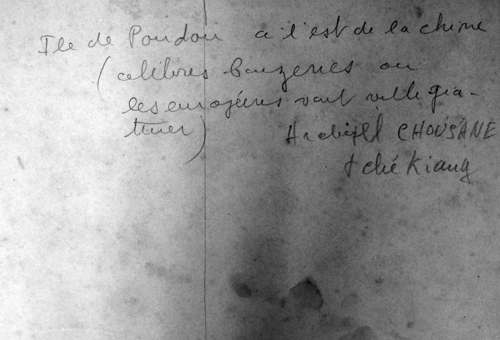 Ile de Poudou a l'est de la chine
(célèbres bonzeries ou
les européens vont villégia-
turer) Archipel CHOUSANE
tché Kiang